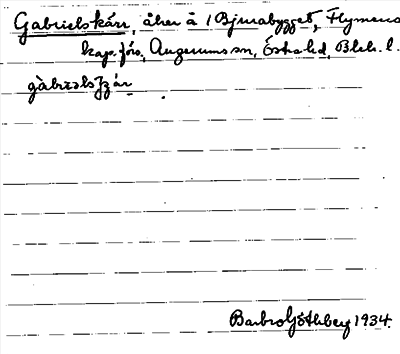 Gabrielskärr, åker å 1 Bjurabygget, Flymens
kap. förs., Augerums sn, Östra hd, Blek. l.
Barbro Göthberg 1934.